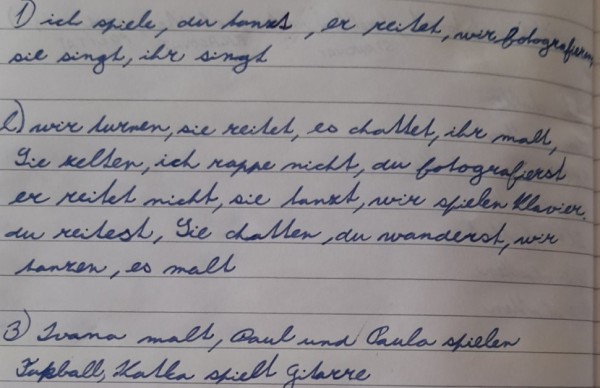 1) ich spiele, du tanzt, er reitet, wir fotografieren,
sie singt, ihr singt
2) wir turnen, sie reitet, es chattet, ihr malt,
Sie zelten, ich rappe nicht, du fotografierst
er reitet nicht, sie tanzt, wir spielen Klavier,
du reitest, Sie chatten, du wanderst, wir
tanzen, es malt
3) Ivana malt, Paul und Paula spielen
Fußball, Katka spielt Gitarre